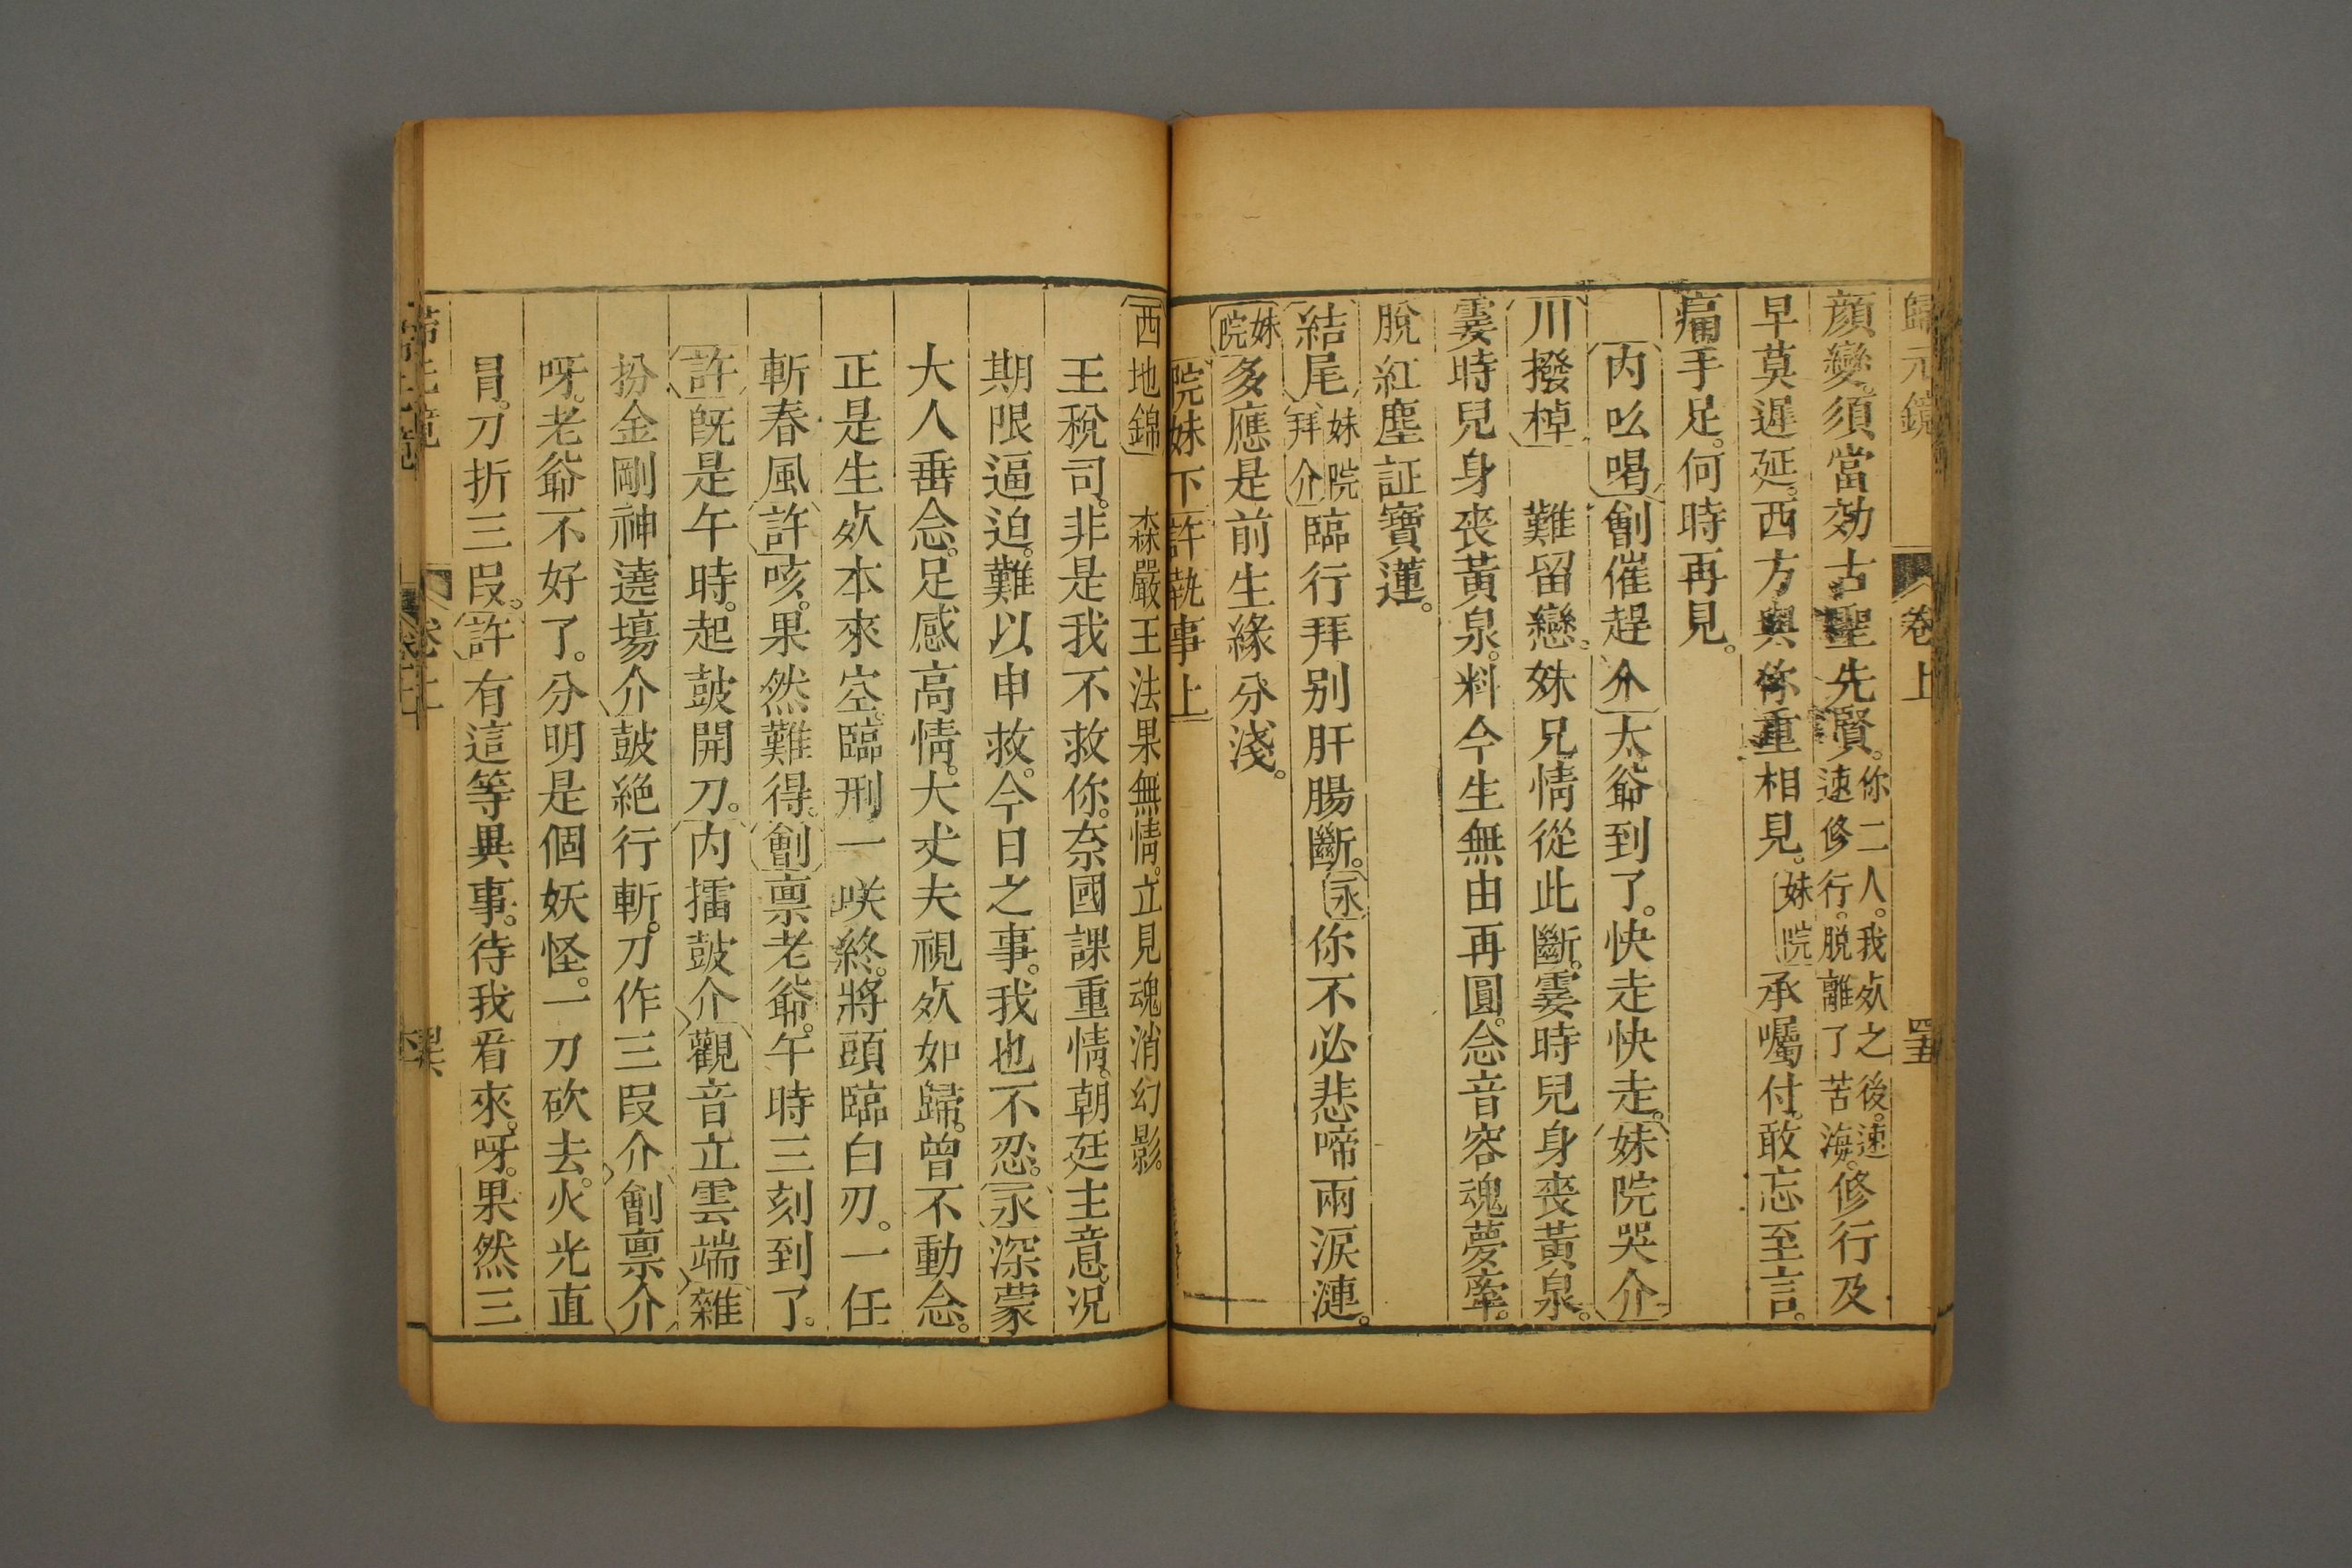 歸元鏡 卷上 罣
顔變。須當効古聖先賢。你二人。我㱠之後。速速修行。脱離了苦海。修行及
早莫遲延。西方與你重相見。妹院承囑付。敢忘至言。
痛手足。何時再見。
内吆喝劊催趕介大爺到了。快走快走。妹院哭介
川撥棹 難留戀。妹兄情從此斷。霎時兒身喪黃泉。
霎時兒身喪黃泉。料今生無由再圓。念音容魂夢牽。
脫紅塵証寶蓮。
結尾妹院拜介臨行拜别肝腸斷。永你不必悲啼兩淚漣。
妹院多應是前生緣分淺。
院妹下許執事上
西地錦 森嚴王法果無情。立見魂消幻影。
王稅司。非是我不救你。奈國課重情。朝廷主意。况
期限逼迫。難以申救。今日之事。我也不忍。永深蒙
大人垂念。足感高情。大丈夫視㱠如歸。曾不動念。
正是生㱠本來空。臨刑一咲終。將頭臨白刃。一任
斬春風許咳。果然難得。劊禀老爺。午時三刻到了。
許既是午時。起鼓開刀。内擂鼓介觀音立雲端雜
扮金剛神遶塲介鼓絶行斬。刀作三叚介劊禀介
呀。老爺不好了。分明是個妖怪。一刀砍去。火光直
冐。刀折三叚。許有這等異事。待我看來。呀。果然三